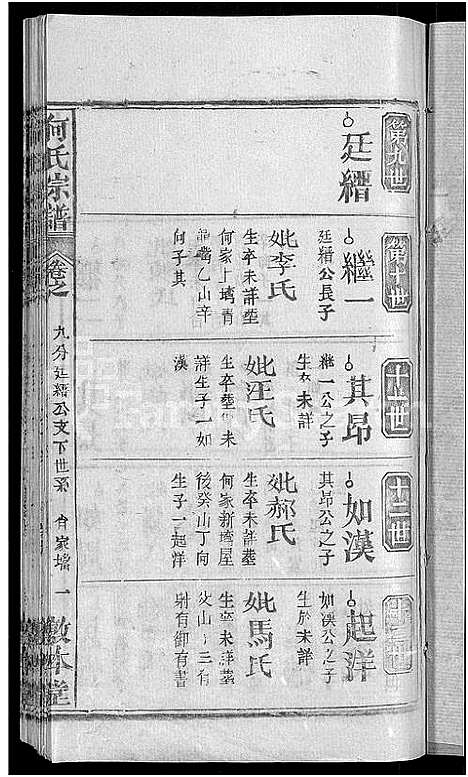 第九世
廷縉
第十世
繼一
廷縉公長子
妣李氏
生卒未詳塟
何家上塆青
龍嘴乙山辛
向子其
十一世
其昂
繼一公之子
生卒未詳
妣汪氏
生卒塟未
詳生子一如
漢
十二世
如漢
其昂公之子
妣郝氏
生卒未詳塟
何家新塆屋
後癸山丁向
生子一起洋
世
起洋
如漢公之子
生於未詳
妣馬氏
生卒未詳塟
山 三有
財有御有書
何氏宗譜
卷之
九分廷縉公支下世系
一
敦本堂